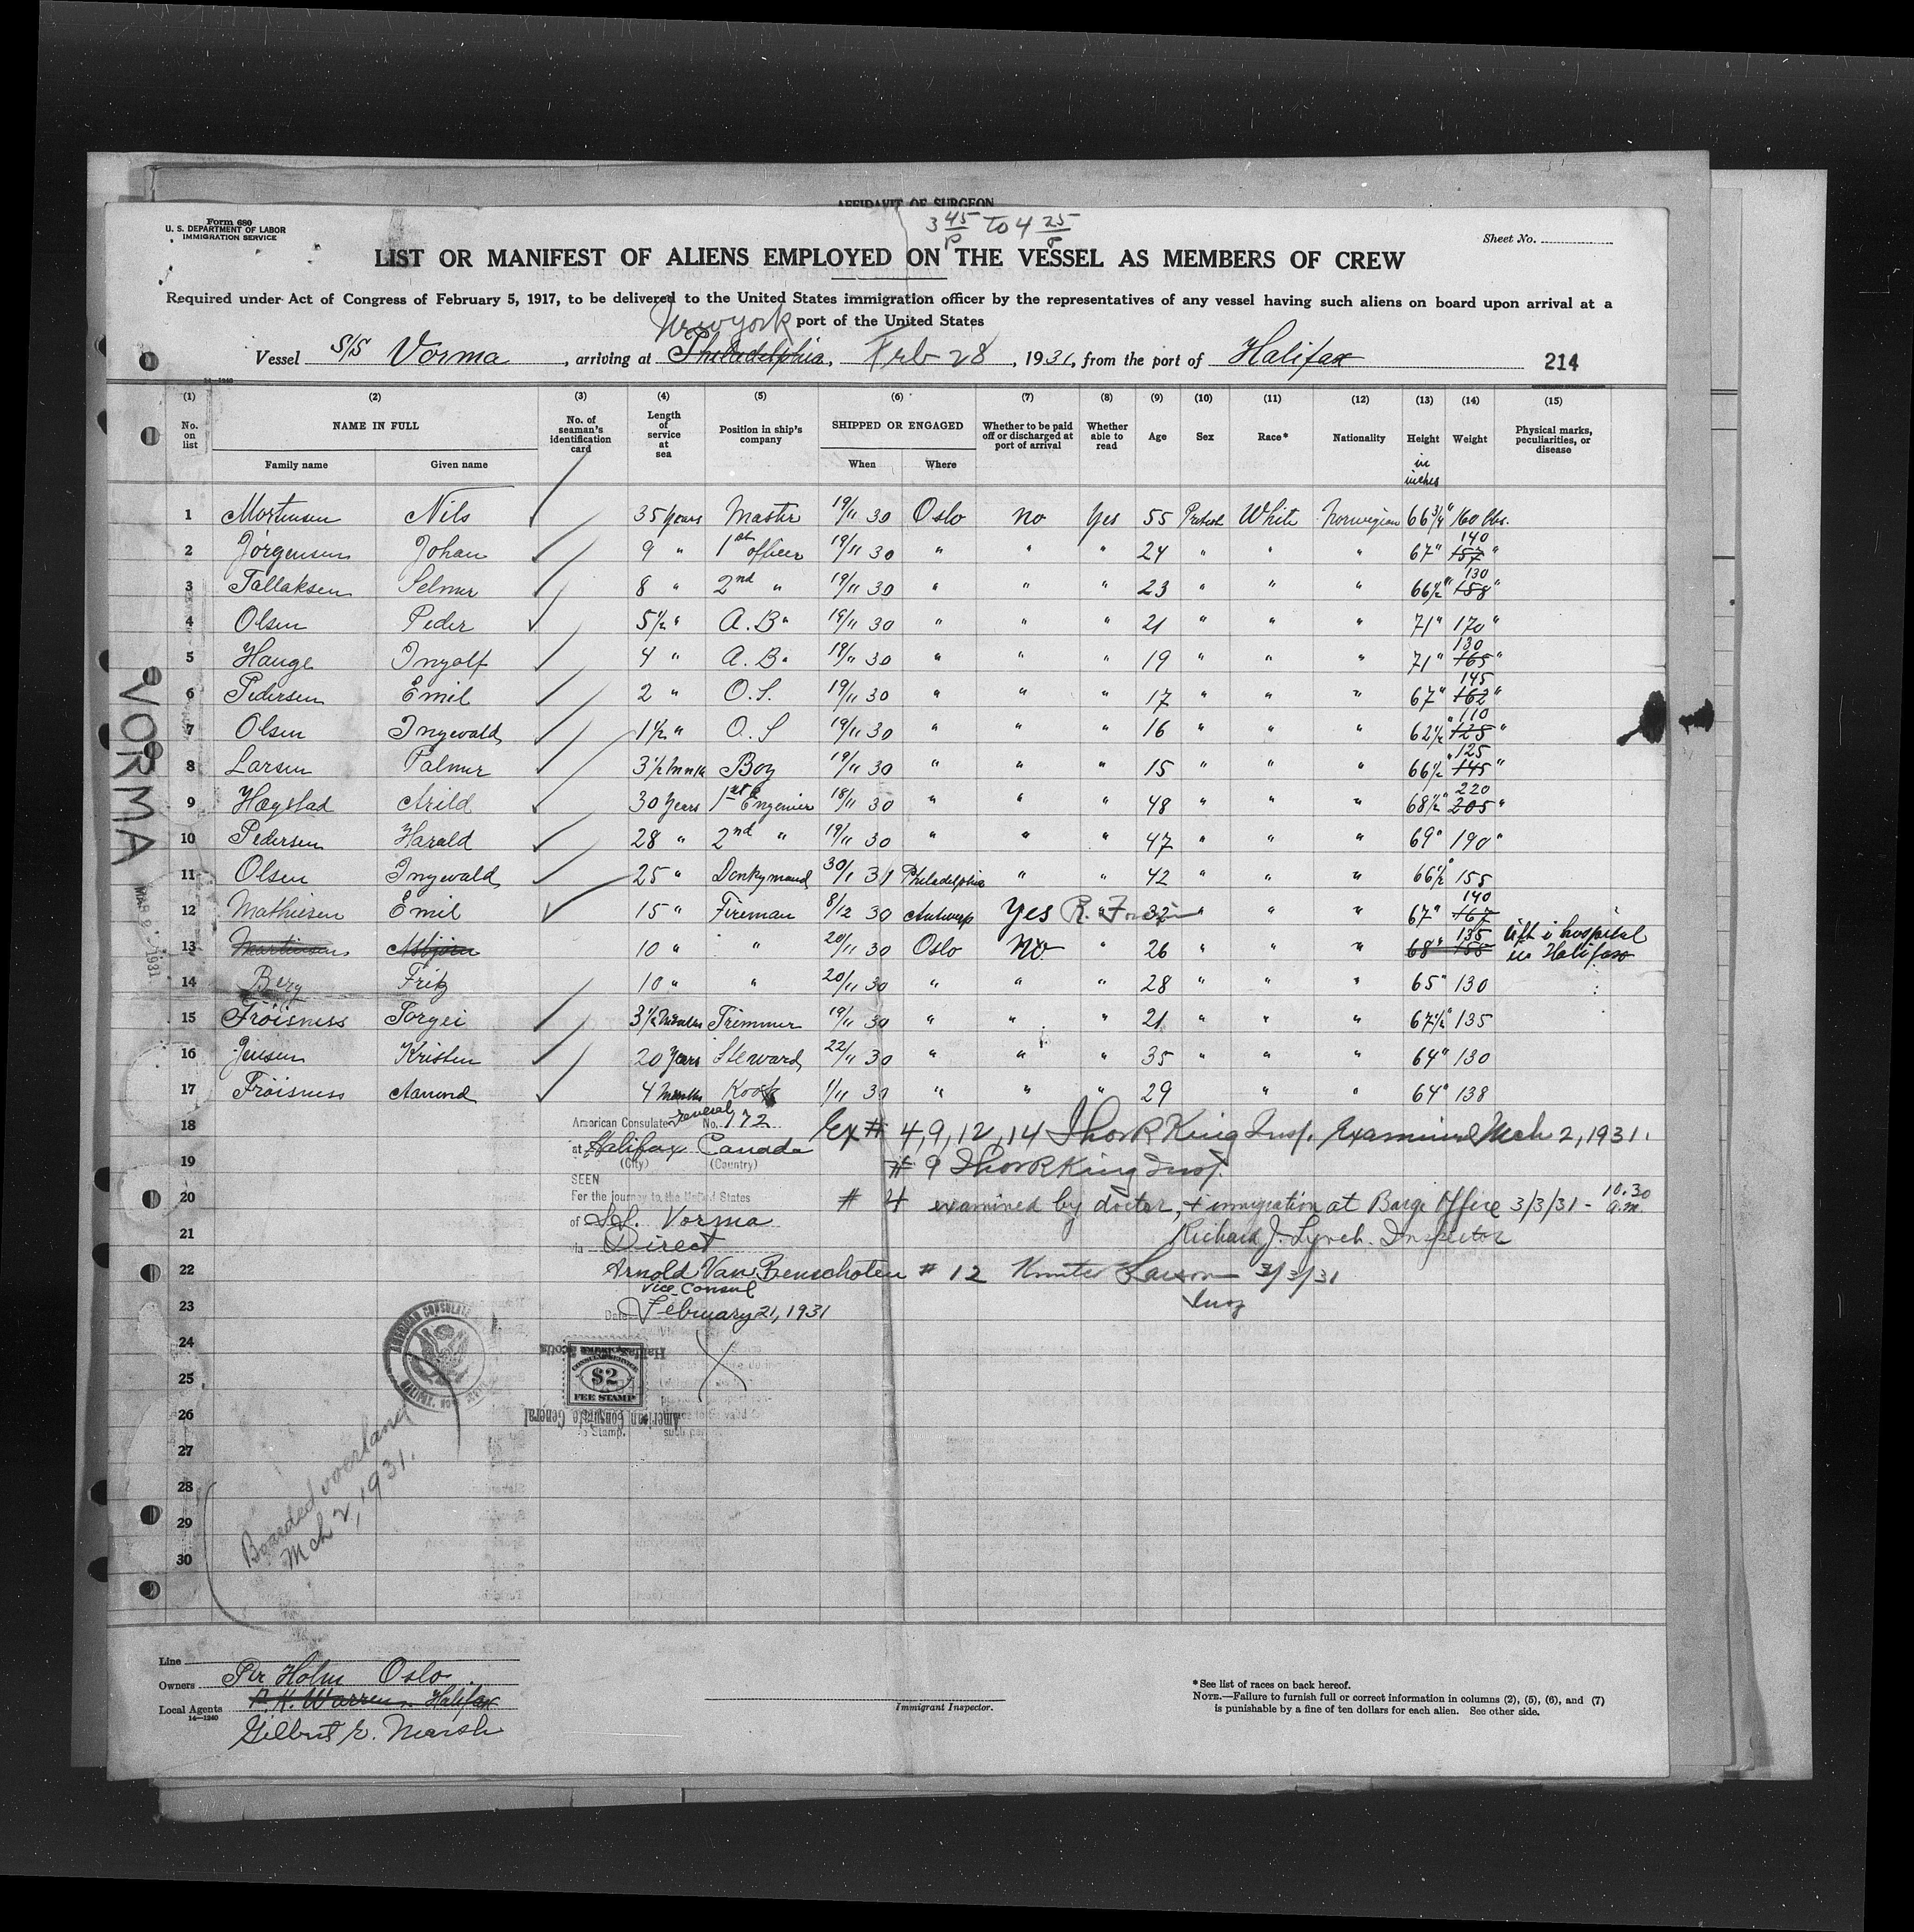 AFFIDAVIT OF SURGEON
3 45/P to 4 25/P
Form 680
U. S. DEPARTMENT OF LABOR
IMMIGRATION SERVICE
Sheet No.
LIST OR MANIFEST OF ALIENS EMPLOYED ON THE VESSEL AS MEMBERS OF CREW
Required under Act of Congress of February 5, 1917, to be delivered to the United States immigration officer by the representatives of any vessel having such aliens on board upon arrival at a
port of the United States
New York
Vessel S/S Vorma, arriving at Philadelphia, Feb 28, 1931, from the port of Halifax 214
14—1240
(1) (2) (3) (4) (5) (6) (7) (8) (9) (10) (11) (12) (13) (14) (15)
No. on list NAME IN FULL No. of seaman's identification card Length of service at sea Position in ship's company SHIPPED OR ENGAGED Whether to be paid off or discharged at port of arrival Whether able to read Age Sex Race* Nationality Height in inches Weight Physical marks, peculiarities, or disease
Family name Given name When Where
1 Mortensen Nils 35 years Master 19/11 30 Oslo No Yes 55 Protest White Norwegian 66 3/4" 160 lbs.
2 Jörgensen Johan 9 " 1st officer 19/11 30 " " " 24 " " " 67" 157 140 "
3 Tallaksen Selmer 8 " 2nd " 19/11 30 " " " 23 " " " 66 1/2" 158 130 "
4 Olsen Peder 5 1/2 " A. B. 19/11 30 " " " 21 " " " 71" 170 "
5 Hauge Ingolf 4 " A. B. 19/11 30 " " " 19 " " " 71" 165 130 "
6 Pedersen Emil 2 " O. S. 19/11 30 " " " 17 " " " 67" 162 145 "
7 Olsen Ingwald 1 1/2 " O. S 19/11 30 " " " 16 " " " 62 1/2" 125 110 "
8 Larsen Palmer 3 1/2 Mnth Boy 19/11 30 " " " 15 " " " 66 1/2" 145 125 "
9 Høgstad Arild 30 Years 1st Engenier 18/11 30 " " " 48 " " " 68 1/2" 205 220 "
10 Pedersen Harald 28 " 2nd " 19/11 30 " " " 47 " " " 69" 190 "
11 Olsen Ingwald 25 " Donkymand 30/1 31 Philadelphia " " 42 " " " 66 1/2" 155
12 Mathiesen Emil 15 " Fireman 8/12 30 Antwerp Yes " 32 " " " 67" 167 140
13 Martinsen Asbjörn 10 " " 20/11 30 Oslo No " 26 " " " 68" 158 135 left i hospital
in Halifax
14 Berg Fritz 10 " " 20/11 30 " " " 28 " " " 65" 130
15 Fröisness Torgei 3 1/2 Months Trimmer 19/11 30 " " " 21 " " " 67 1/2" 135
16 Jensen Kristen 20 Years Steward 22/11 30 " " " 35 " " " 64" 130
17 Fröisness Aamund 4 Months Kook 1/11 30 " " " 29 " " 64" 138
18 American Consulate General No. 172 Ex # 4, 9, 12, 14 Thos R King Insp. Examined Mch 2, 1931.
at Halifax Canada
19 (City) (Country) # 9 Thos R King Insp.
SEEN
20 For the journey to the United States # 4 examined by doctor, + immigration at Barge Office 3/3/31 - 10.30 a.m.
of S.S. Vorma
21 via Direct Richard J. Lynch. Inspector
22 Arnold Van Benschoten # 12 Larson 3/3/31
Vice-Consul Insp
23 Date February 21, 1931
24
25
26
27
28
29
30
AMERICAN CONSULATE
CONSULAR SERVICE
$2
FEE STAMP
American Consulate General
Boarded
Mch 2, 1931.
VORMA
Line
Owners Per Holm Oslo.
Local Agents P. H. Warren. Halifax
14—1240
Gilbert E. Marsh
Immigrant Inspector.
*See list of races on back hereof.
NOTE.—Failure to furnish full or correct information in columns (2), (5), (6), and (7)
is punishable by a fine of ten dollars for each alien. See other side.